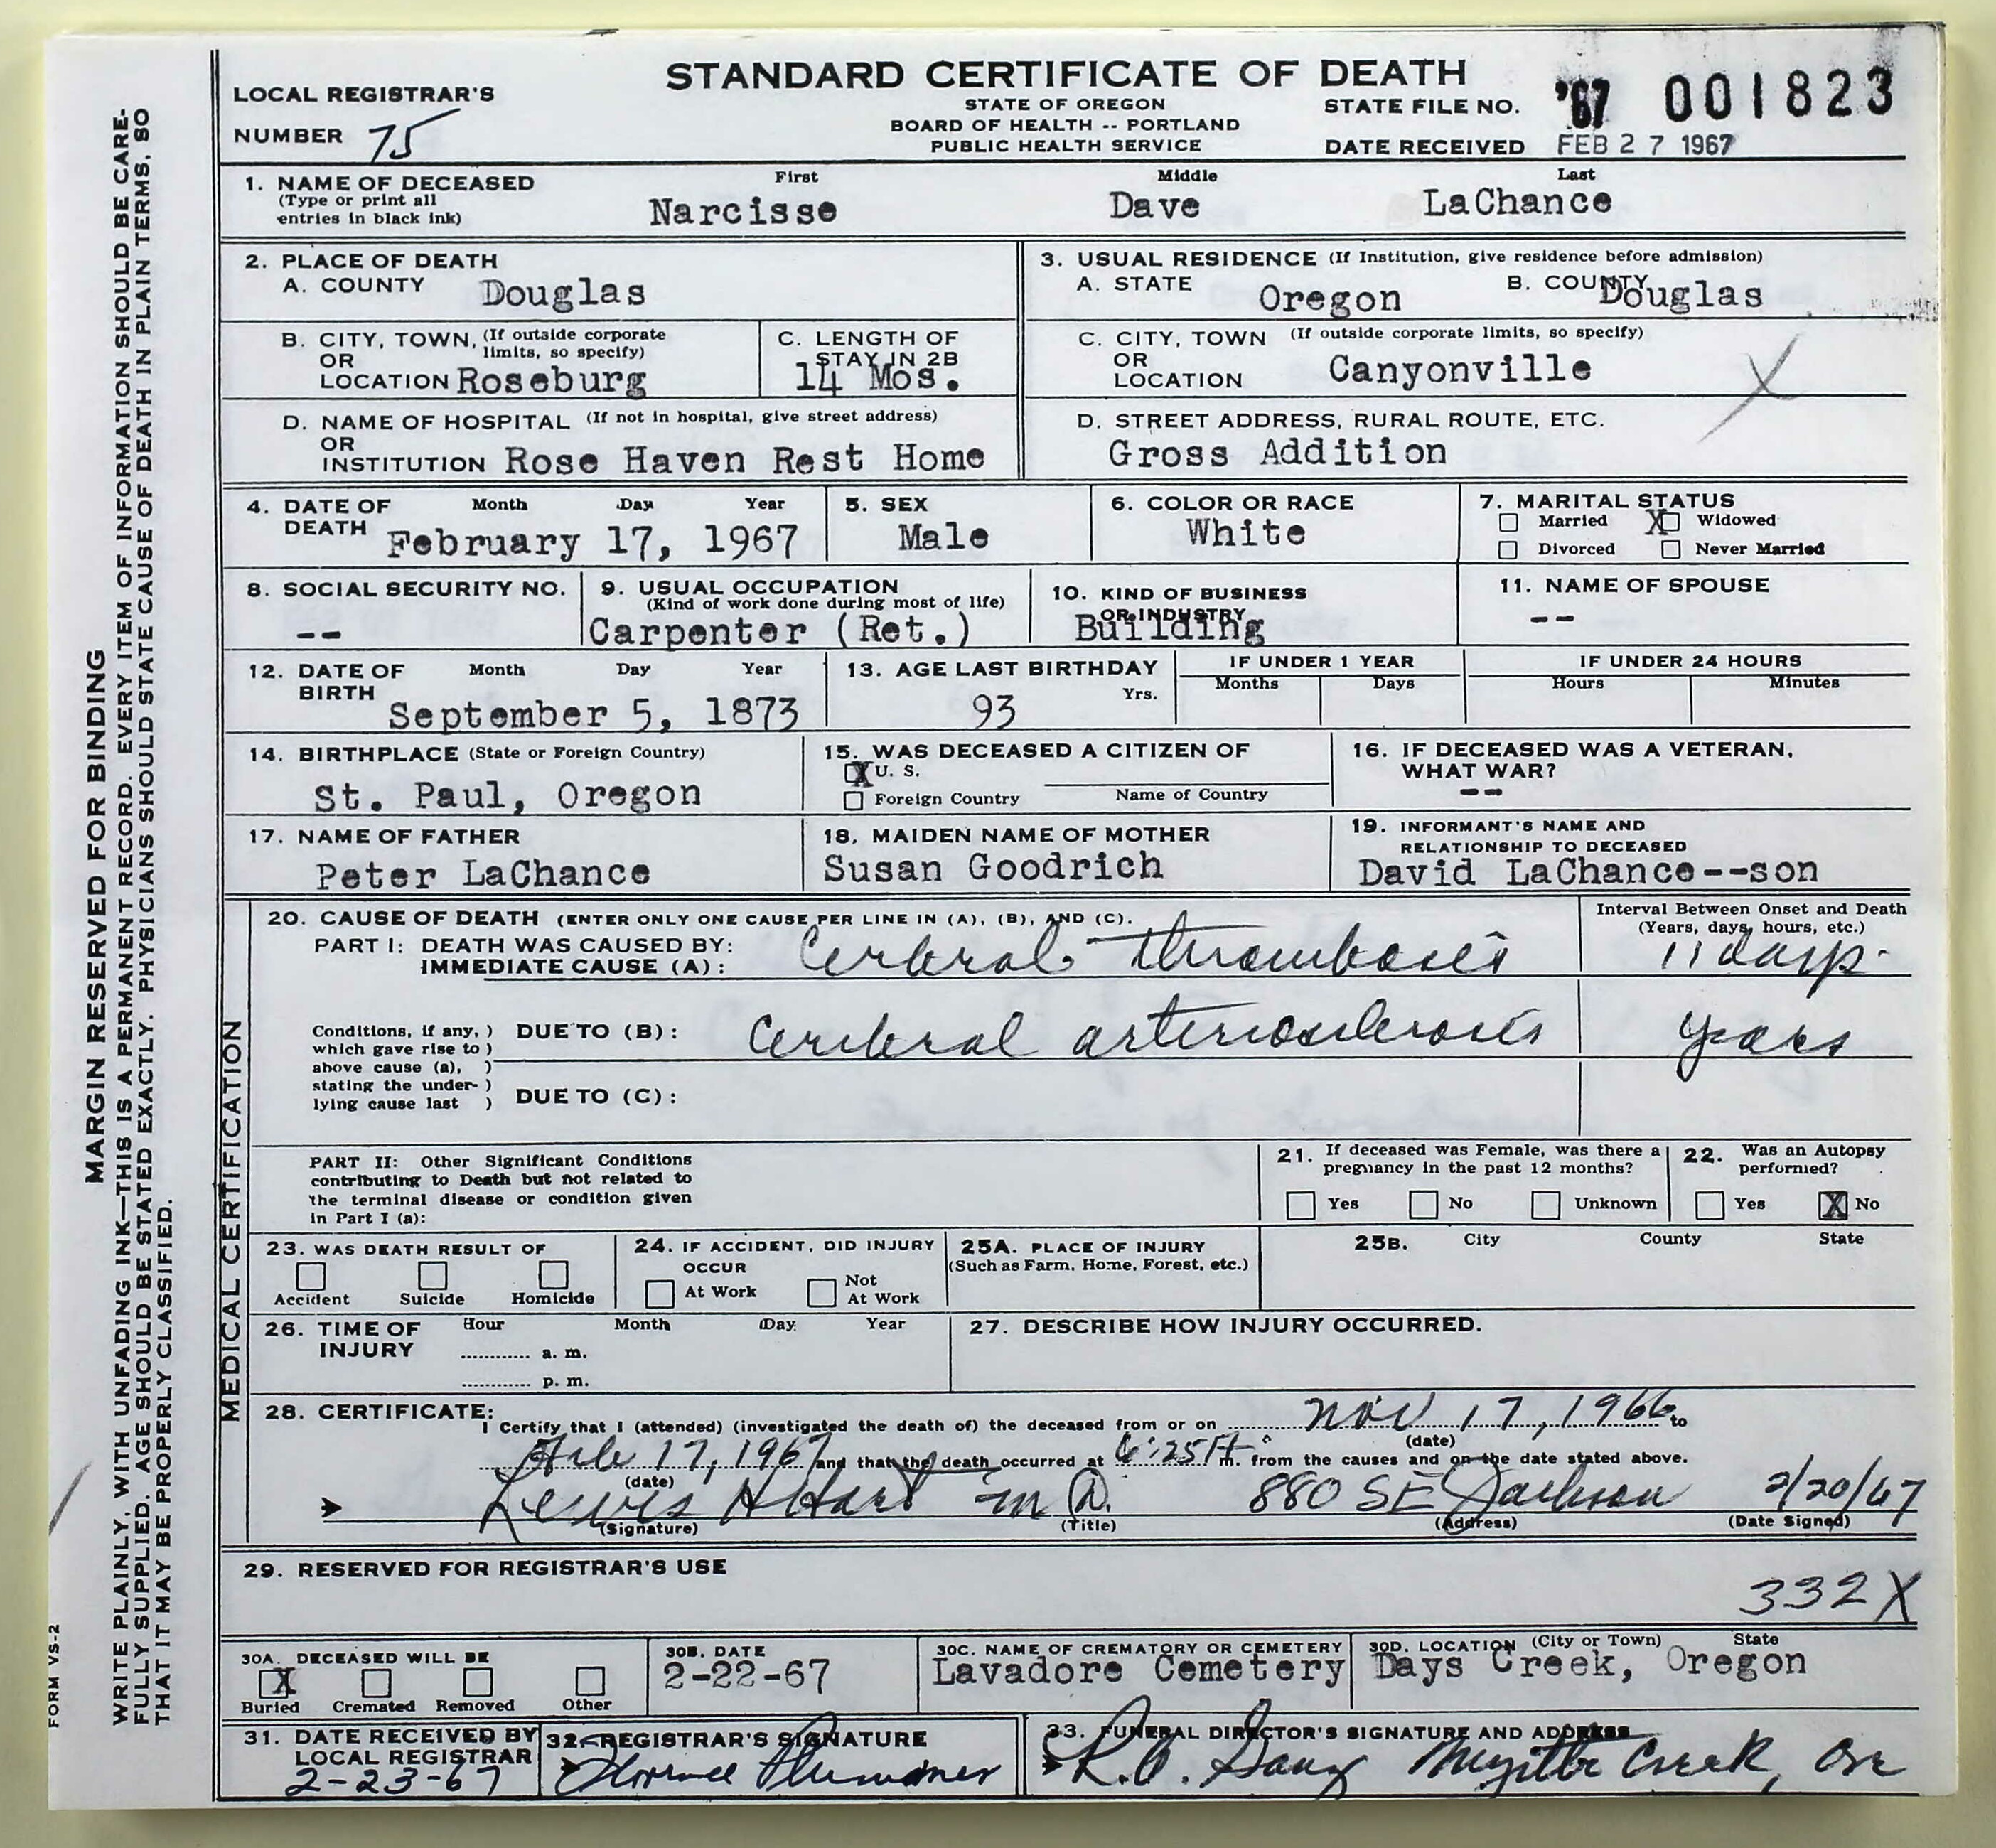 STANDARD CERTIFICATE OF DEATH
STATE OF OREGON
BOARD OF HEALTH -- PORTLAND
PUBLIC HEALTH SERVICE
LOCAL REGISTRAR'S
NUMBER 75
STATE FILE NO. '67 001823
DATE RECEIVED FEB 27 1967
1. NAME OF DECEASED
(Type or print all
entries in black ink)
First Middle Last
Narcisse Dave LaChance
2. PLACE OF DEATH
A. COUNTY Douglas
B. CITY, TOWN, (If outside corporate
OR limits, so specify)
LOCATION Roseburg
C. LENGTH OF
STAY IN 2B
14 Mos.
D. NAME OF HOSPITAL (If not in hospital, give street address)
OR
INSTITUTION Rose Haven Rest Home
3. USUAL RESIDENCE (If Institution, give residence before admission)
A. STATE Oregon B. COUNTY Douglas
C. CITY, TOWN (If outside corporate limits, so specify)
OR
LOCATION Canyonville
X
D. STREET ADDRESS, RURAL ROUTE, ETC.
Gross Addition
4. DATE OF Month Day Year
DEATH February 17, 1967
5. SEX
Male
6. COLOR OR RACE
White
7. MARITAL STATUS
Married X Widowed
Divorced Never Married
8. SOCIAL SECURITY NO.
--
9. USUAL OCCUPATION
(Kind of work done during most of life)
Carpenter (Ret.)
10. KIND OF BUSINESS
OR INDUSTRY
Building
11. NAME OF SPOUSE
--
12. DATE OF Month Day Year
BIRTH September 5, 1873
13. AGE LAST BIRTHDAY
93 Yrs.
IF UNDER 1 YEAR
Months Days
IF UNDER 24 HOURS
Hours Minutes
14. BIRTHPLACE (State or Foreign Country)
St. Paul, Oregon
15. WAS DECEASED A CITIZEN OF
X U. S.
Foreign Country Name of Country
16. IF DECEASED WAS A VETERAN,
WHAT WAR?
--
17. NAME OF FATHER
Peter LaChance
18. MAIDEN NAME OF MOTHER
Susan Goodrich
19. INFORMANT'S NAME AND
RELATIONSHIP TO DECEASED
David LaChance--son
20. CAUSE OF DEATH (ENTER ONLY ONE CAUSE PER LINE IN (A), (B), AND (C).
PART I: DEATH WAS CAUSED BY:
IMMEDIATE CAUSE (A): Cerebral thrombosis
Interval Between Onset and Death
(Years, days, hours, etc.)
11 days
Conditions, if any, )
which gave rise to )
above cause (a), )
stating the under- )
lying cause last )
DUE TO (B): Cerebral arteriosclerosis years
DUE TO (C):
PART II: Other Significant Conditions
contributing to Death but not related to
the terminal disease or condition given
in Part I (a):
21. If deceased was Female, was there a
pregnancy in the past 12 months?
Yes No Unknown
22. Was an Autopsy
performed?
Yes X No
23. WAS DEATH RESULT OF
Accident Suicide Homicide
24. IF ACCIDENT, DID INJURY
OCCUR
At Work Not At Work
25A. PLACE OF INJURY
(Such as Farm, Home, Forest, etc.)
25B. City County State
26. TIME OF INJURY
Hour Month Day Year
a. m.
p. m.
27. DESCRIBE HOW INJURY OCCURRED.
28. CERTIFICATE:
I Certify that I (attended) (investigated the death of) the deceased from or on Nov 17, 1966 to
(date)
Feb 17, 1967 and that the death occurred at 6:25 P. m. from the causes and on the date stated above.
(date)
Lewis H Hart M D. 880 SE Jackson 2/20/67
(Signature) (Title) (Address) (Date Signed)
29. RESERVED FOR REGISTRAR'S USE
332X
30A. DECEASED WILL BE
X
Buried Cremated Removed Other
30B. DATE
2-22-67
30C. NAME OF CREMATORY OR CEMETERY
Lavadore Cemetery
30D. LOCATION (City or Town) State
Days Creek, Oregon
31. DATE RECEIVED BY
LOCAL REGISTRAR
2-23-67
32. REGISTRAR'S SIGNATURE
Florence
33. FUNERAL DIRECTOR'S SIGNATURE AND ADDRESS
Myrtle Creek, Ore
MEDICAL CERTIFICATION
MARGIN RESERVED FOR BINDING
WRITE PLAINLY, WITH UNFADING INK—THIS IS A PERMANENT RECORD. EVERY ITEM OF INFORMATION SHOULD BE CARE-
FULLY SUPPLIED. AGE SHOULD BE STATED EXACTLY. PHYSICIANS SHOULD STATE CAUSE OF DEATH IN PLAIN TERMS, SO
THAT IT MAY BE PROPERLY CLASSIFIED.
FORM VS-2